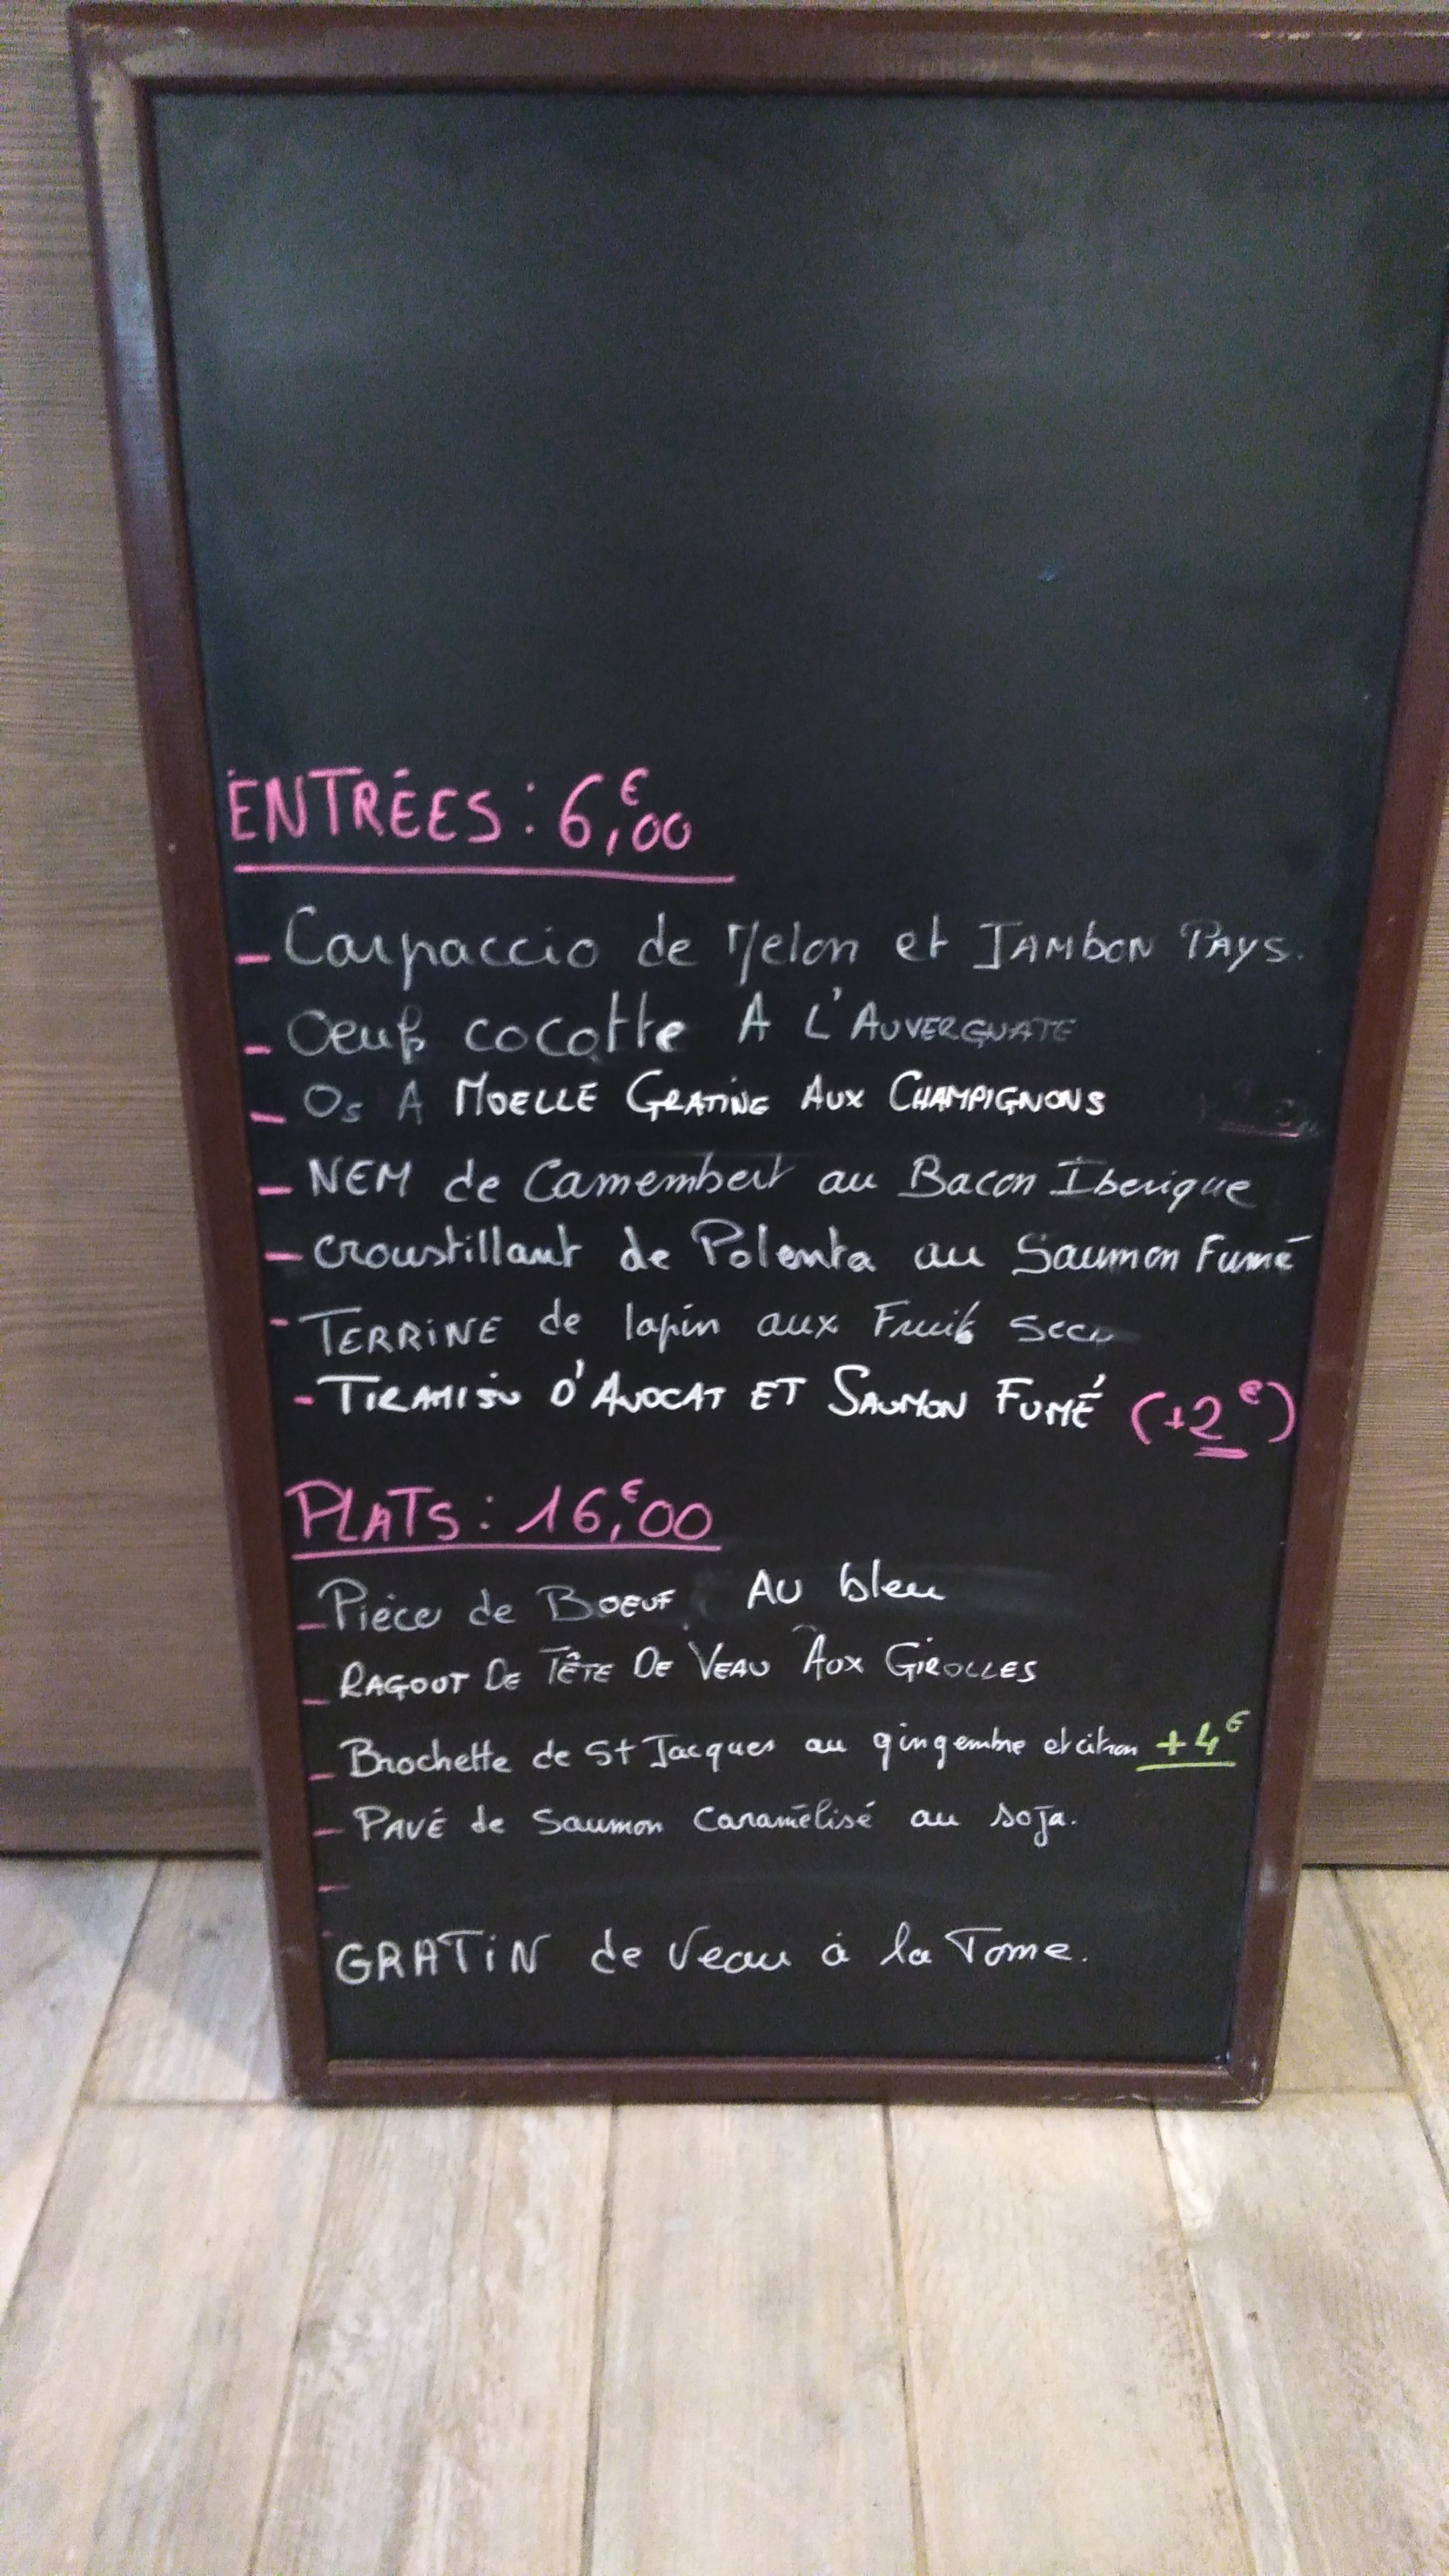 ENTRÉES : 6,€00
- Carpaccio de Melon et JAMBON PAYS.
- Oeufs cocotte A L'AUVERGNATE
- Os A MOELLE GRATINÉ AUX CHAMPIGNONS
- NEM de Camembert au Bacon Iberique
- croustillant de Polenta au Saumon Fumé
- TERRINE de lapin aux Fruits secs
- TIRAMISU D'AVOCAT ET SAUMON FUMÉ (+2€)
PLATS : 16,€00
- Pièce de BOEUF AU bleu
- RAGOUT DE TÊTE DE VEAU AUX GIROLLES
- Brochette de St Jacques au gingembre et citron +4€
- PAVÉ de Saumon Caramélisé au soja.
-
GRATIN de Veau à la Tome.